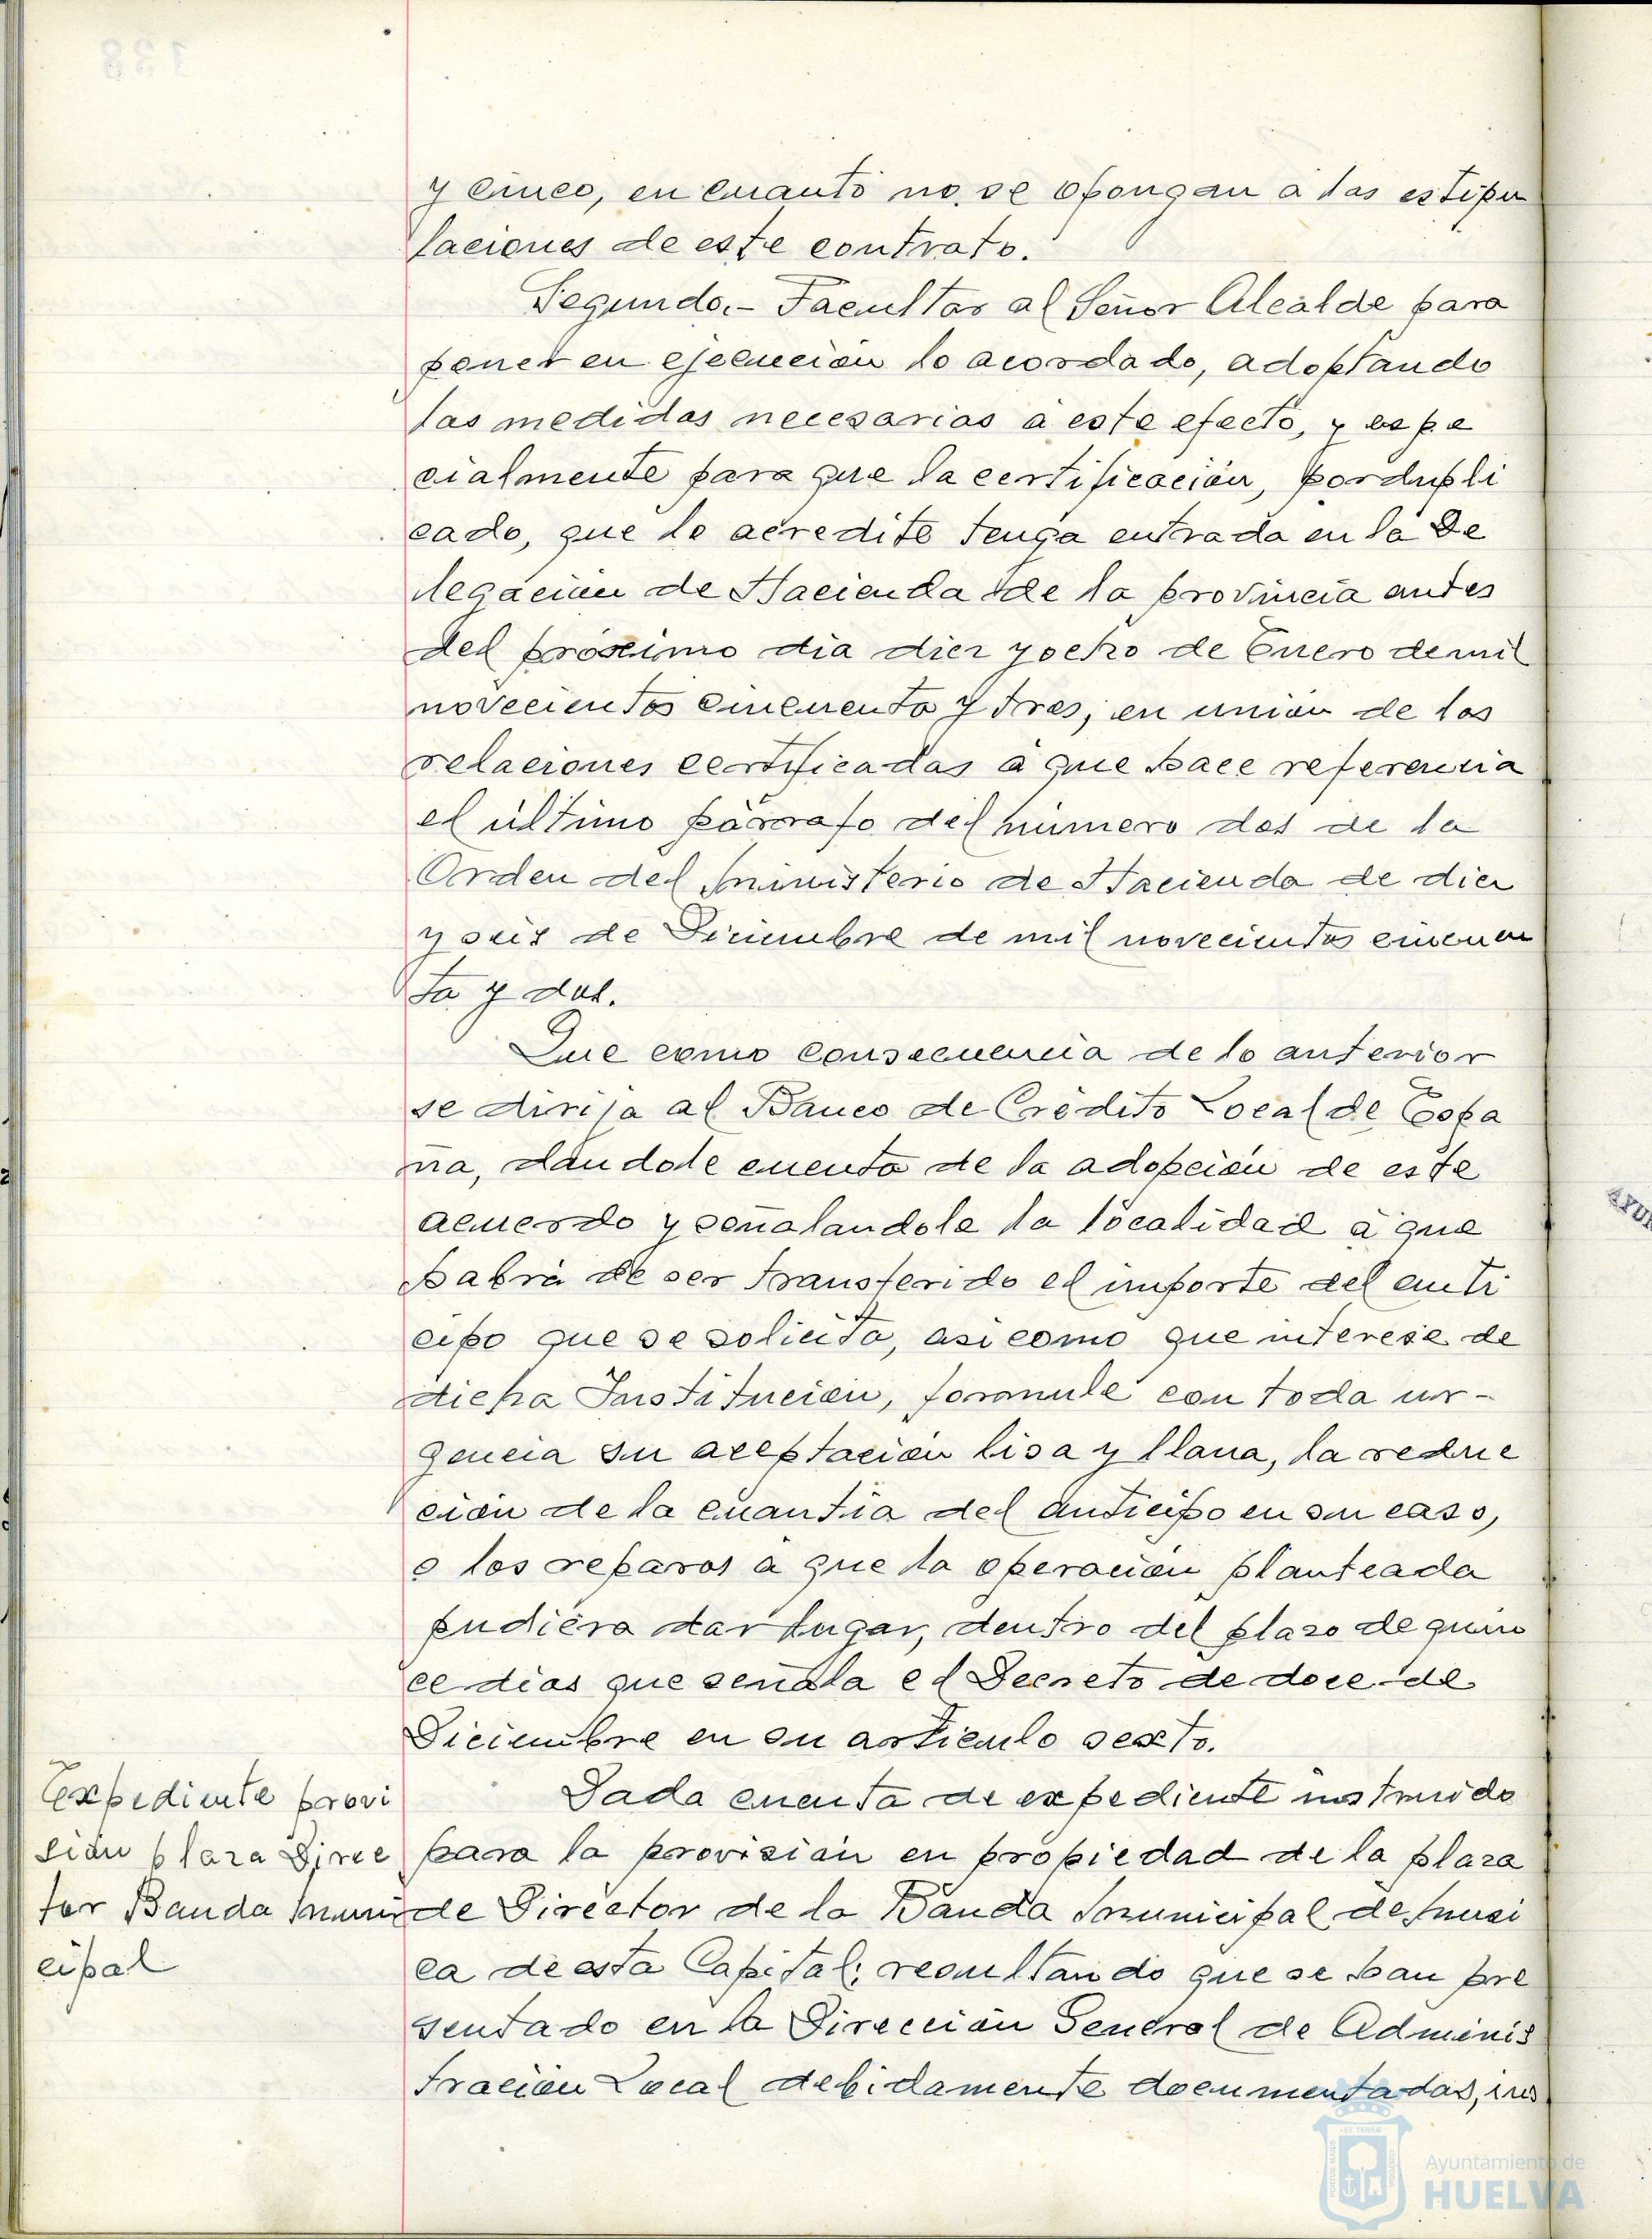 y cinco, en cuanto no se opongan a las estipu
laciones de este contrato.
Segundo.- Facultar al Señor Alcalde para
poner en ejecución lo acordado, adoptando
las medidas necesarias a este efecto, y espe
cialmente para que la certificación, por dupli
cado, que lo acredite tenga entrada en la De
legación de Hacienda de la provincia antes
del próximo día diez y ocho de Enero de mil
novecientos cincuenta y tres, en unión de las
relaciones certificadas a que hace referencia
el último párrafo del número dos de la
Orden del Ministerio de Hacienda de diez
y seis de Diciembre de mil novecientos cincuen
ta y dos.
Que como consecuencia de lo anterior
se dirija al Banco de Crédito Local de Espa
ña, dándole cuenta de la adopción de este
acuerdo y señalandole la localidad a que
habrá de ser transferido el importe del anti
cipo que se solicita, asi como que interese de
dicha Institución, formule con toda ur-
gencia su aceptación lisa y llana, la reduc
ción de la cuantía del anticipo en su caso,
o los reparos a que la operación planteada
pudiera dar lugar, dentro del plazo de quin
ce dias que señala el Decreto de doce de
Diciembre en su artículo sexto.
Expediente provi
sión plaza Direc
tor Banda Muni
cipal
Dada cuenta de expediente instruido
para la provisión en propiedad de la plaza
de Director de la Banda Municipal de Musi
ca de esta Capital; resultando que se han pre
sentado en la Dirección General de Adminis
tración Local debidamente documentadas, ins
Ayuntamiento de
HUELVA